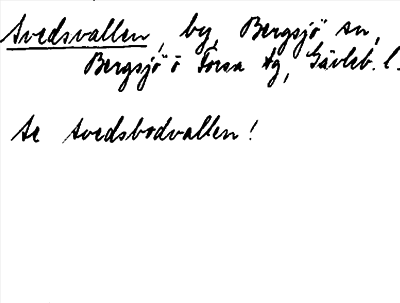 Avedsvallen, by, Bergsjö sn,
Bergsjö o Forsa tg, Gävleb. l.
Se Avedsbodvallen!